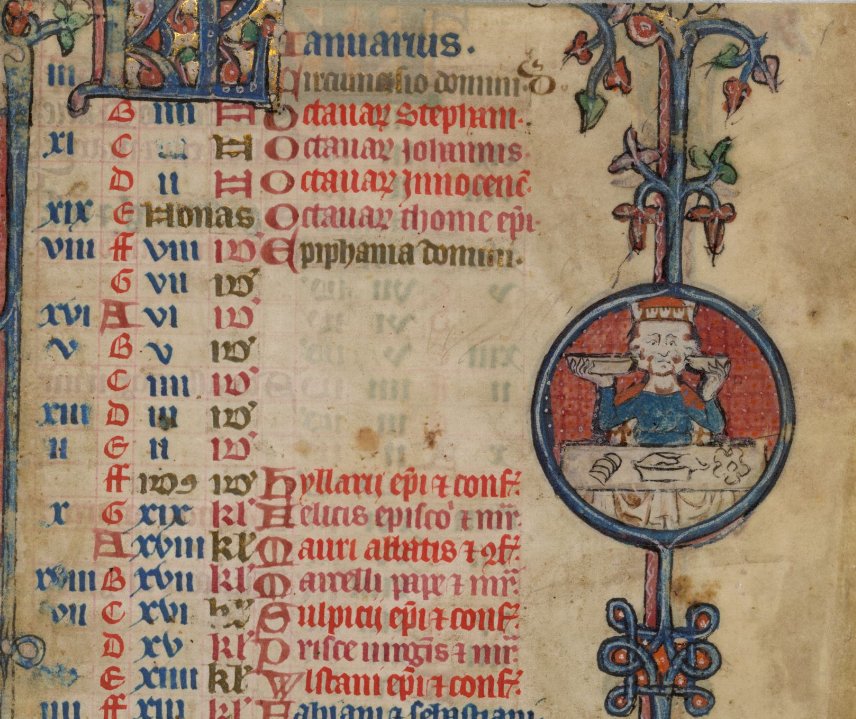 KL Januarius.
iii Circumcisio domini.
B iiii N Octauaꝝ Stephani.
xi C iii N Octauaꝝ Johannis.
D ii N Octauaꝝ Jnnocenc̄
xix E Nonas Octauaꝝ thome ep̄i.
viii ff viii id' Epiphania domini.
G vii id'
xvi A vi id'
v B v id'
C iiii id'
xiii D iii id'
ii E ii id'
ff id9 id' hyllarii ep̄i ⁊ conf̄.
x G xix kl' Felicis episco' ⁊ mr̄.
A xviii kl' Mauri abbatis ⁊ ꝯf̄.
xviii B xvii kl' Marcelli pape ⁊ mr̄.
vii C xvi kl' Sulpicii ep̄i ⁊ conf̄.
D xv kl' Prisce uirgīs ⁊ mr̄.
E xiiii kl' Wlstani ep̄i ⁊ conf̄.
iiii ff xiii kl' Fabiani ⁊ sebastiani.